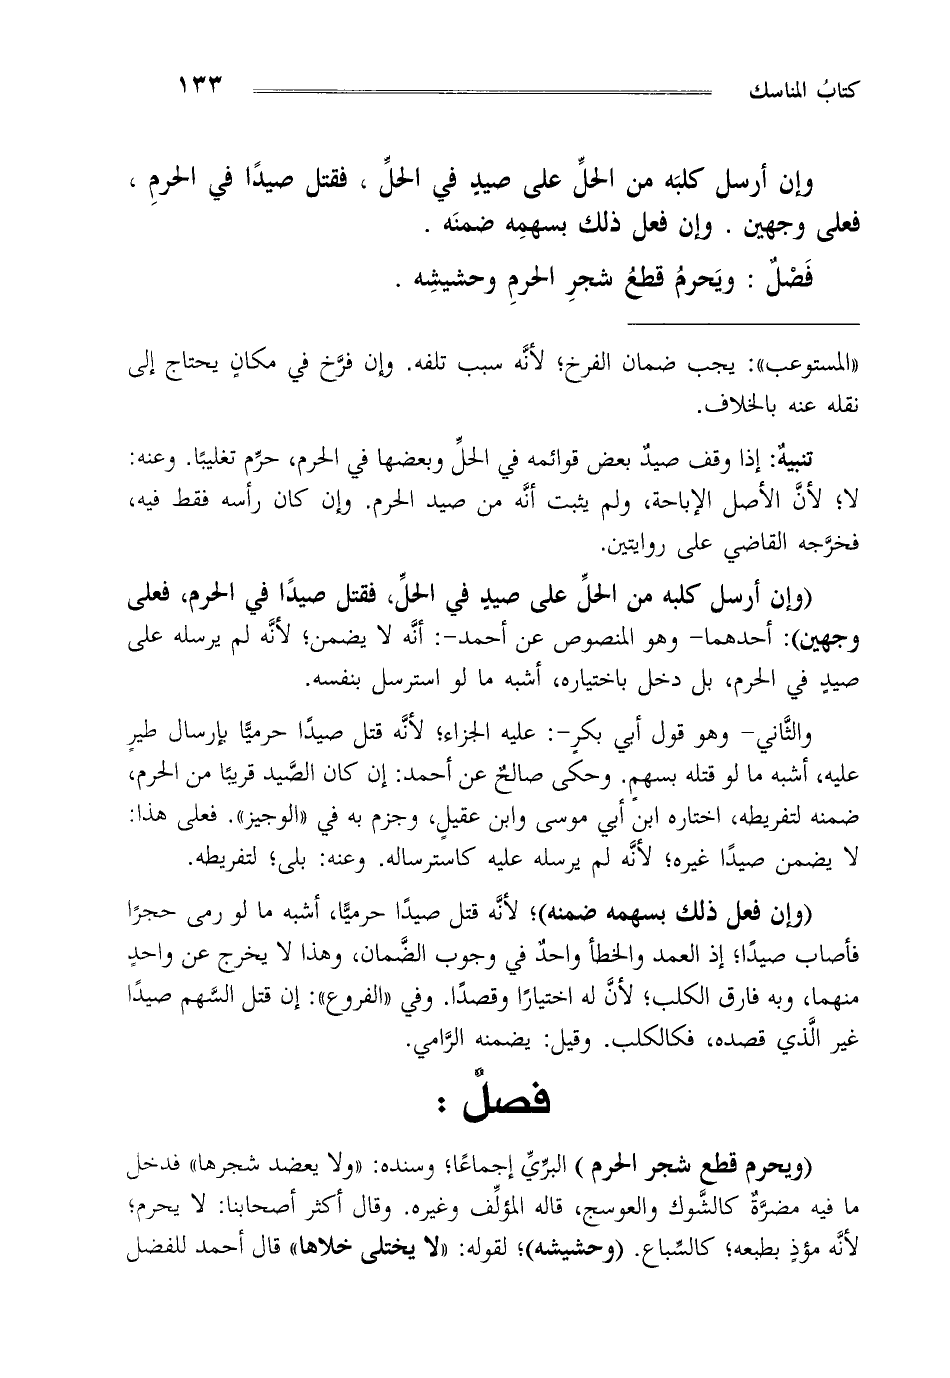 كتابُ المناسك ١٣٣
وإن أرسل كلبَه من الحلِّ على صيدٍ في الحلِّ ، فقتل صيدًا في الحرمِ ،
فعلى وجهين . وإن فعل ذلك بسهمِه ضمنَه .
فَصْلٌ : ويَحرمُ قطعُ شجرِ الحرمِ وحشيشِه .
«المستوعب»: يجب ضمان الفرخ؛ لأنَّه سبب تلفه. وإن فرَّخ في مكانٍ يحتاج إلى
نقله عنه بالخلاف.
تنبيهٌ: إذا وقف صيدٌ بعض قوائمه في الحلِّ وبعضها في الحرم، حرِّم تغليبًا. وعنه:
لا؛ لأنَّ الأصل الإباحة، ولم يثبت أنَّه من صيد الحرم. وإن كان رأسه فقط فيه،
فخرَّجه القاضي على روايتين.
(وإن أرسل كلبه من الحلِّ على صيدٍ في الحلِّ، فقتل صيدًا في الحرم، فعلى
وجهين): أحدهما- وهو المنصوص عن أحمد-: أنَّه لا يضمن؛ لأنَّه لم يرسله على
صيدٍ في الحرم، بل دخل باختياره، أشبه ما لو استرسل بنفسه.
والثَّاني- وهو قول أبي بكرٍ-: عليه الجزاء؛ لأنَّه قتل صيدًا حرميًّا بإرسال طيرٍ
عليه، أشبه ما لو قتله بسهمٍ. وحكى صالحٌ عن أحمد: إن كان الصَّيد قريبًا من الحرم،
ضمنه لتفريطه، اختاره ابن أبي موسى وابن عقيلٍ، وجزم به في «الوجيز». فعلى هذا:
لا يضمن صيدًا غيره؛ لأنَّه لم يرسله عليه كاسترساله. وعنه: بلى؛ لتفريطه.
(وإن فعل ذلك بسهمه ضمنه)؛ لأنَّه قتل صيدًا حرميًّا، أشبه ما لو رمى حجرًا
فأصاب صيدًا؛ إذ العمد والخطأ واحدٌ في وجوب الضَّمان، وهذا لا يخرج عن واحدٍ
منهما، وبه فارق الكلب؛ لأنَّ له اختيارًا وقصدًا. وفي «الفروع»: إن قتل السَّهم صيدًا
غير الَّذي قصده، فكالكلب. وقيل: يضمنه الرَّامي.
فصلٌ :
(ويحرم قطع شجر الحرم ) البرِّيِّ إجماعًا؛ وسنده: «ولا يعضد شجرها» فدخل
ما فيه مضرَّةٌ كالشَّوك والعوسج، قاله المؤلِّف وغيره. وقال أكثر أصحابنا: لا يحرم؛
لأنَّه مؤذٍ بطبعه؛ كالسِّباع. (وحشيشه)؛ لقوله: «لا يختلى خلاها» قال أحمد للفضل